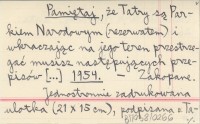 Pamiętaj, że Tatry są Par-
kiem Narodowym (rezerwatem) i
wkraczając na jego teren przestrze-
gać musisz następujących prze-
pisów [...] 1954. — Zakopane.
Jednostronnie zadrukowana
ulotka (21 x 15 cm), podpisana = Ta-